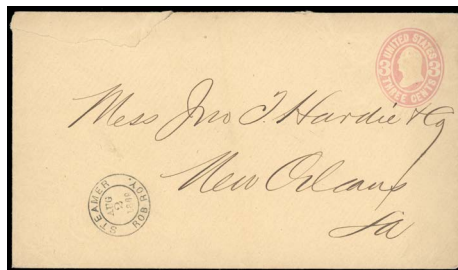 UNITED STATES
3 3
THREE CENTS
Mess Jno T. Hardie & Co
New Orleans
La
STEAMER
AUG
ROB ROY.